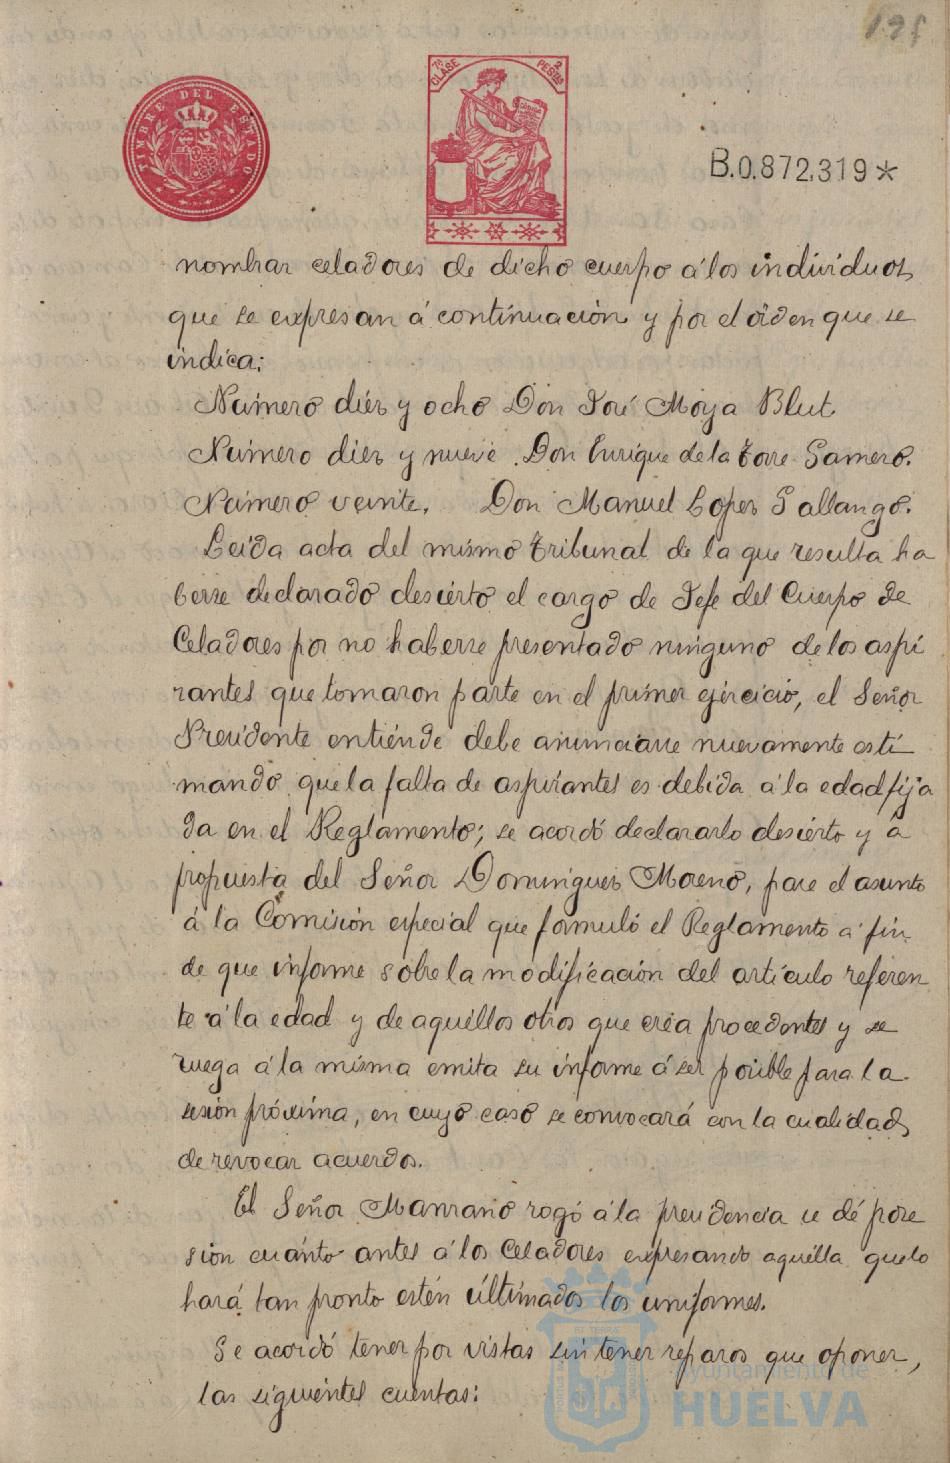 TIMBRE DEL ESTADO
7ª CLASE
2 PESTAS
B.0.872,319*
nombrar celadores de dicho cuerpo á los individuos
que se expresan á continuación y por el orden que se
indica:
Número diez y ocho Don José Moya Blut
Número diez y nueve. Don Enrique de la Torre Gamero.
Número veinte. Don Manuel Lopez Gallango.
Leida acta del mismo tribunal de la que resulta ha
berse declarado desierto el cargo de Jefe del Cuerpo de
Celadores por no haberse presentado ninguno de los aspi
rantes que tomaron parte en el primer ejercicio, el Señor
Presidente entiende debe anunciarse nuevamente esti
mando que la falta de aspirantes es debida á la edad fija
da en el Reglamento; se acordó declararlo desierto y á
propuesta del Señor Dominguez Moreno, pase el asunto
á la Comisión especial que formuló el Reglamento á fin
de que informe sobre la modificación del articulo referen
te á la edad y de aquéllos otros que crea procedentes y se
ruega á la misma emita su informe á ser posible para la
sesión próxima, en cuyo caso se convocará con la cualidad
de revocar acuerdos.
El Señor Manzano rogó á la presidencia se dé pose
sion cuánto antes á los Celadores expresando aquélla que lo
hará tan pronto estén últimados los uniformes.
Se acordó tener por vistas sin tener reparos que oponer,
las siguientes cuentas:
ayuntamiento de
HUELVA